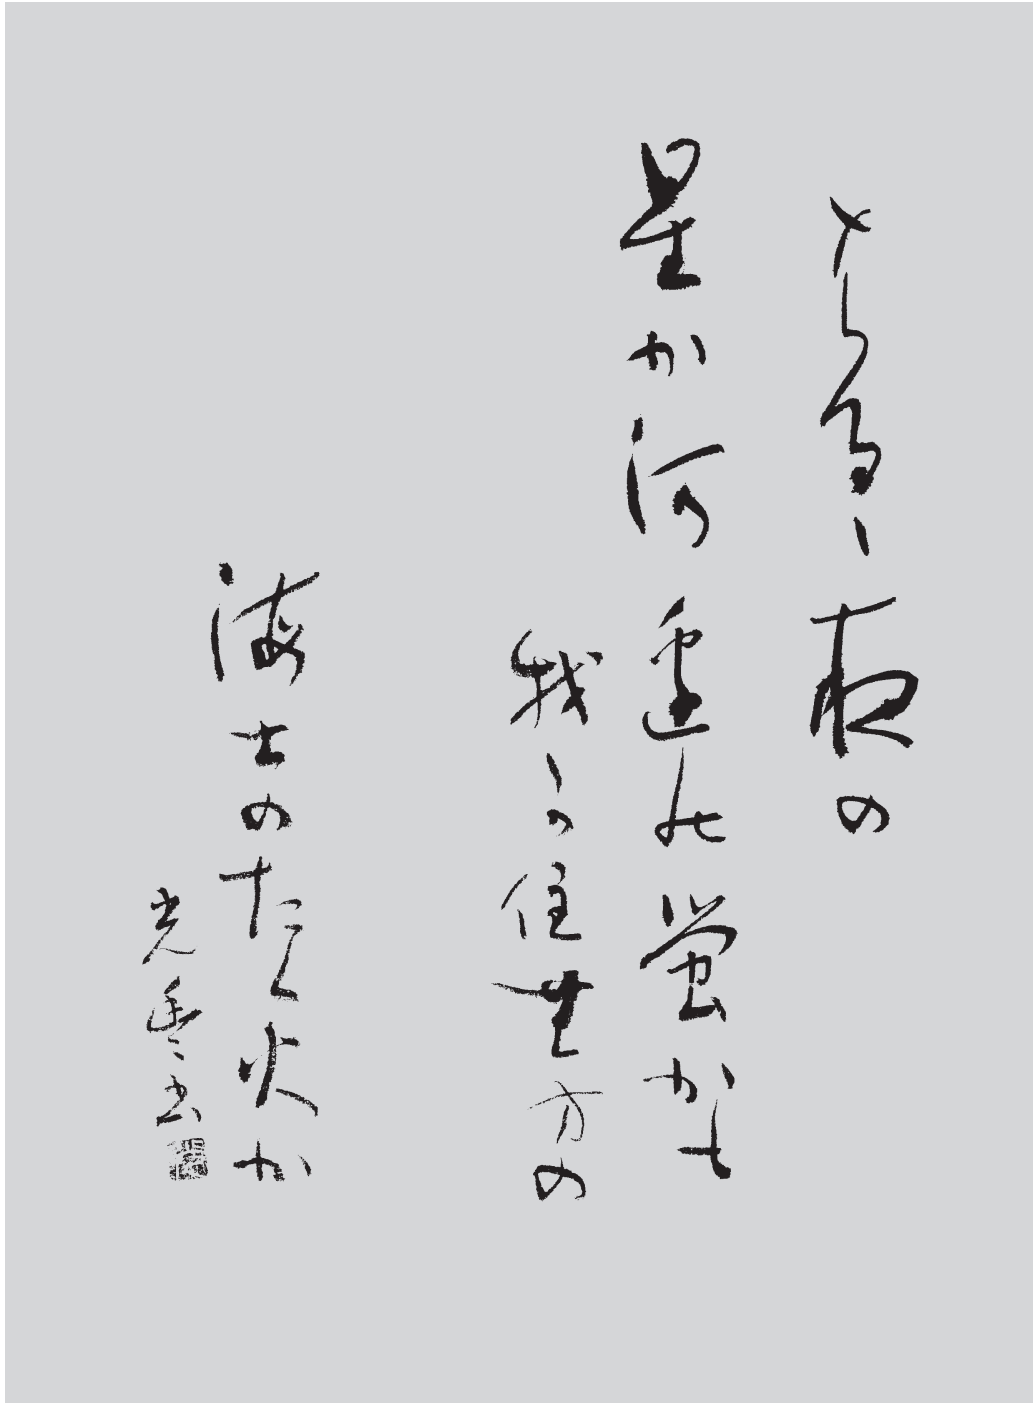 はるゝ夜の
星か河邊の蛍かも
我可住無方の
海士のたく火か
光豊書